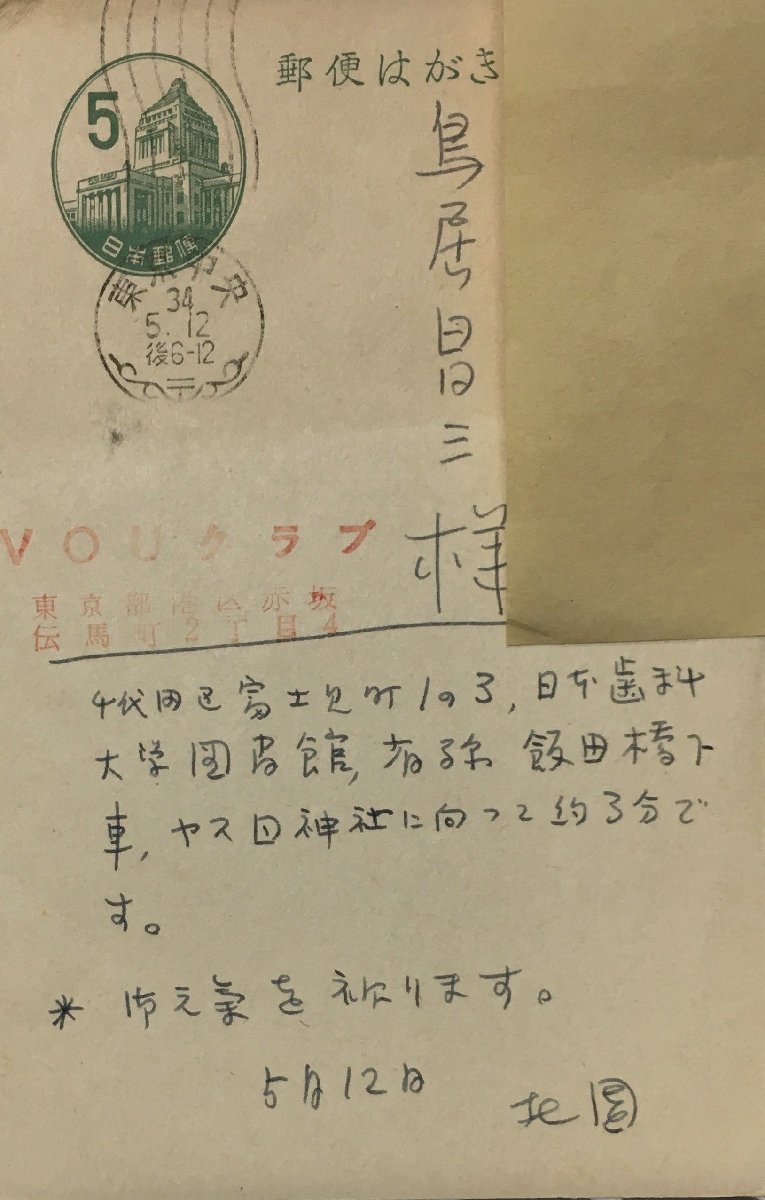 郵便はがき
5
日本郵便
東京中央
34
5.12
後6-12
鳥居昌三
様
VOUクラブ
東京都港区赤坂
伝馬町2丁目4
千代田区富士見町1の3,日本歯科
大学図書館,省線 飯田橋下
車,ヤス囗神社に向って約3分で
す。
* 御元氣を祈ります。
5月12日
北園